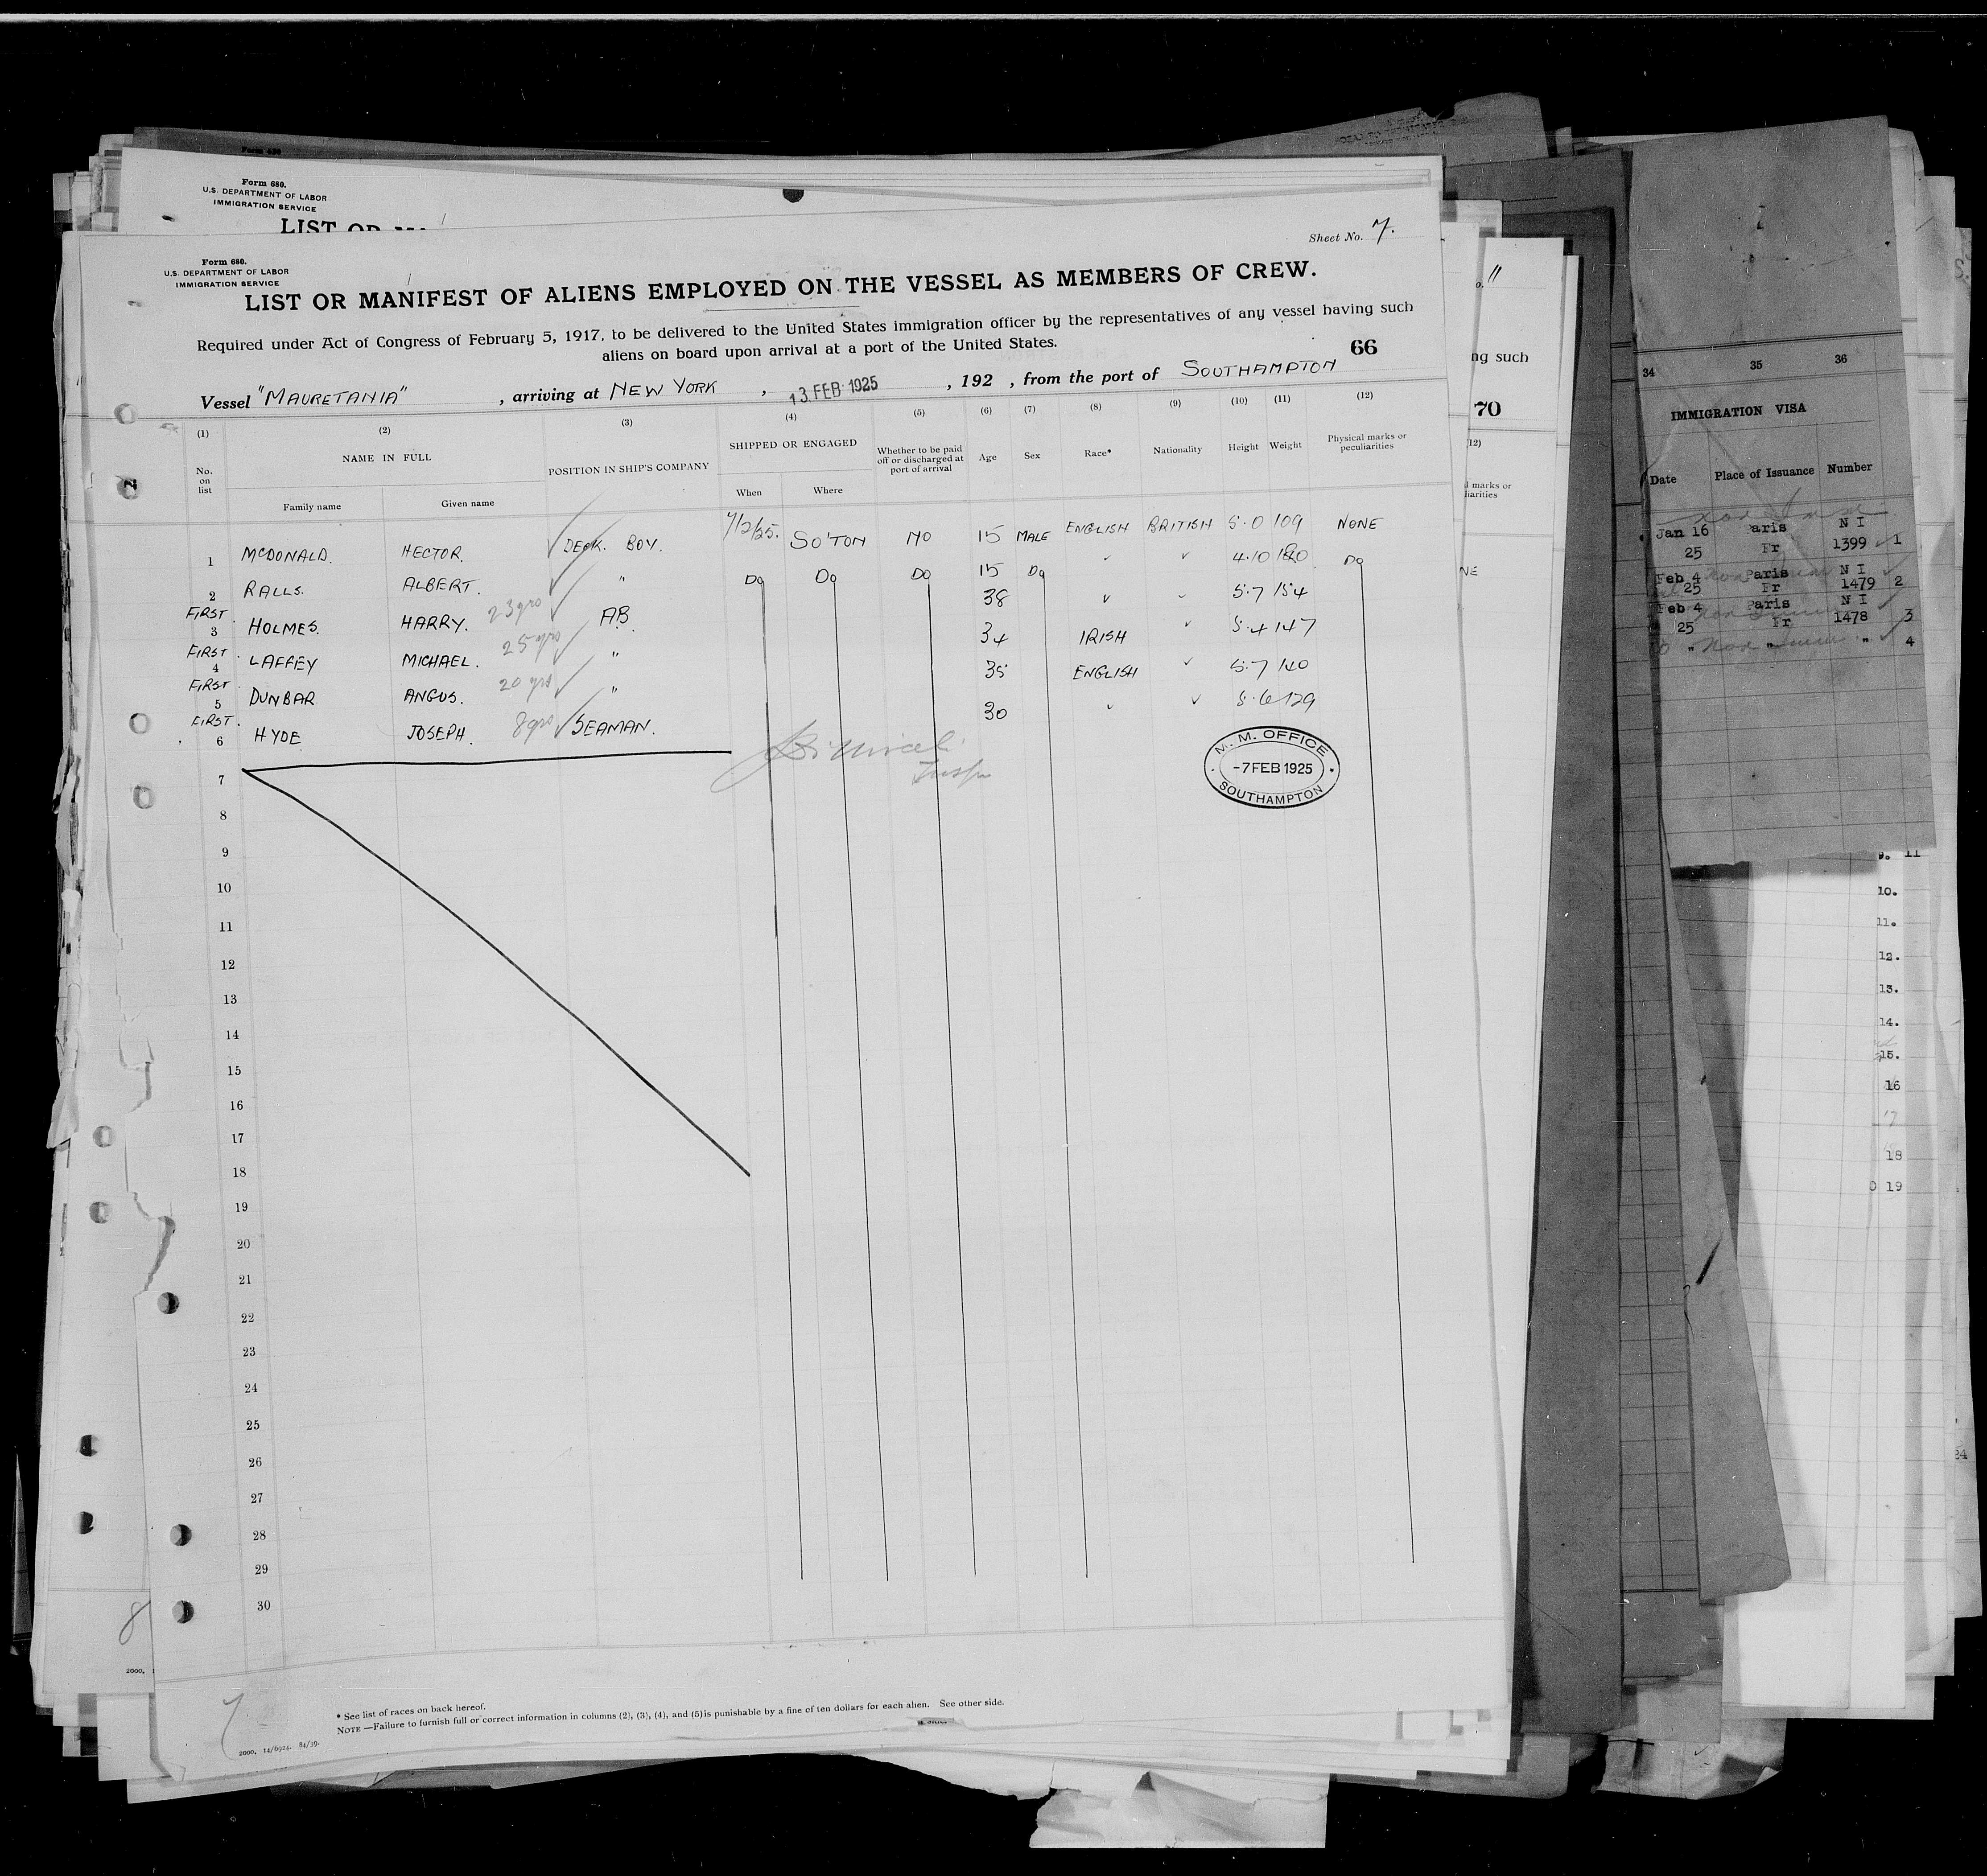 Form 680.
U.S. DEPARTMENT OF LABOR
IMMIGRATION SERVICE
Sheet No. 7.
Form 680.
U.S. DEPARTMENT OF LABOR
IMMIGRATION SERVICE
LIST OR MANIFEST OF ALIENS EMPLOYED ON THE VESSEL AS MEMBERS OF CREW.
Required under Act of Congress of February 5, 1917, to be delivered to the United States immigration officer by the representatives of any vessel having such
aliens on board upon arrival at a port of the United States.
66
Vessel "MAURETANIA", arriving at NEW YORK, 13 FEB 1925, 192 , from the port of SOUTHAMPTON
(1) (2) (3) (4) (5) (6) (7) (8) (9) (10) (11) (12)
No. on list NAME IN FULL POSITION IN SHIP'S COMPANY SHIPPED OR ENGAGED Whether to be paid off or discharged at port of arrival Age Sex Race* Nationality Height Weight Physical marks or peculiarities
Family name Given name When Where
1 MCDONALD. HECTOR. DECK. BOY. 7/2/25. SO'TON NO 15 MALE ENGLISH BRITISH 5.0 109 NONE
2 RALLS. ALBERT. " Do Do Do 15 Do ✓ ✓ 4.10 Do
FIRST. 3 HOLMES. HARRY. 23 yrs AB. 38 ✓ ✓ 5.7 154
FIRST. 4 LAFFEY MICHAEL. 25 yrs " 34 IRISH ✓ 5.4 147
FIRST 5 DUNBAR ANGUS. 20 yrs " 35 ENGLISH ✓ 5.7 140
FIRST. 6 HYDE JOSEPH. 8 yrs SEAMAN. 30 ✓ ✓ 5.6 129
M. M. OFFICE
-7 FEB 1925
SOUTHAMPTON
7
8
9
10
11
12
13
14
15
16
17
18
19
20
21
22
23
24
25
26
27
28
29
30
* See list of races on back hereof.
NOTE —Failure to furnish full or correct information in columns (2), (3), (4), and (5) is punishable by a fine of ten dollars for each alien. See other side.
2000. 14/6924. 84/39.
8
2000.
11
ng such
70
(12)
34 35 36
IMMIGRATION VISA
Date Place of Issuance Number
Jan 16 aris N I
25 Fr 1399 1
Feb 4 Paris N I
25 Fr 1479 2
Feb 4 Paris N I
25 Fr 1478 3
" " " 4
9. 11
10.
11.
12.
13.
14.
15.
16
18
0 19
24